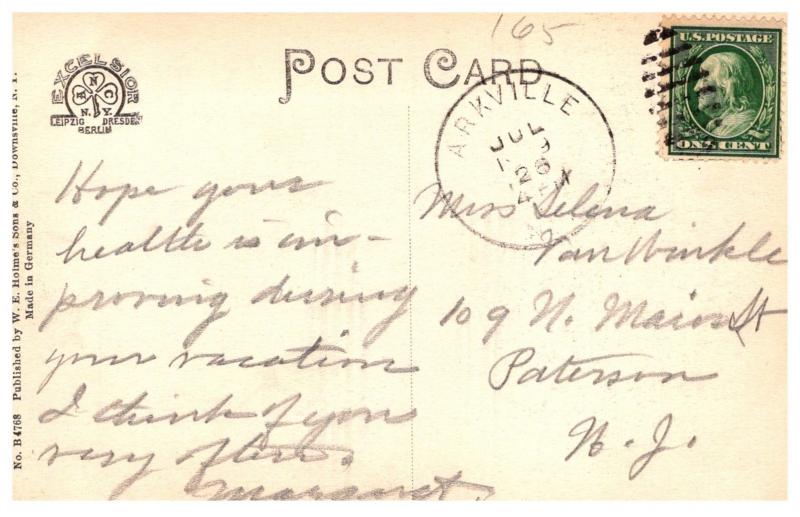 165
POST CARD
U.S. POSTAGE
ONE CENT
EXCELSIOR
A N C
N.Y.
LEIPZIG DRESDEN
BERLIN
ARKVILLE
JUL
26
No. B4768 Published by W. E. Holme's Sons & Co., Downsville, N. Y.
Made in Germany
Hope your
health is im-
proving during
your vacation
I think of you
very often.
Margaret
Miss Selena
Van Winkle
109 N. Main St
Paterson
N. J.